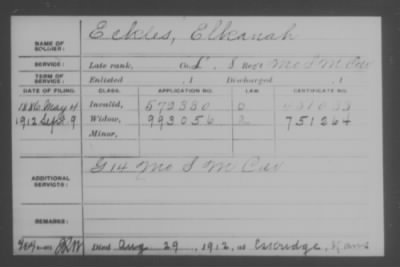 NAME OF SOLDIER: Eckles, Elkanah
SERVICE: Late rank, Co. L, 8 Reg't Mo S M Cav
TERM OF SERVICE: Enlisted , 1 Discharged , 1
DATE OF FILING. CLASS. APPLICATION NO. LAW. CERTIFICATE NO.
1886 May 4 Invalid, 572380
1912 Sept. 9 Widow, 993056 2 751264
Minor,
ADDITIONAL SERVICES: G 14 Mo S M Cav
REMARKS:
Died Aug 29, 1912, at Eskridge, Kans